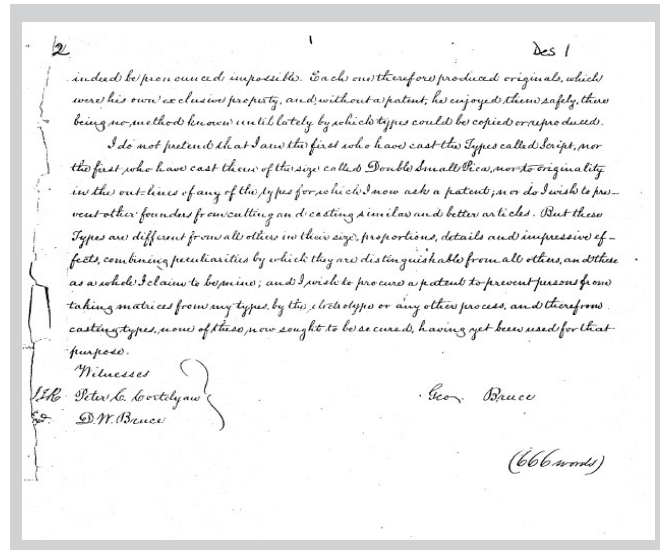 2 1 Des 1
indeed be pronounced impossible. Each one therefore produced originals, which
were his own exclusive property, and, without a patent, he enjoyed them safely, there
being no method known until lately by which types could be copied or reproduced.
I do not pretend that I am the first who have cast the Types called Script, nor
the first who have cast them of the size called Double Small Pica, nor to originality
in the out-lines of any of the types for which I now ask a patent; nor do I wish to pre-
vent other founders from cutting and casting similar and better articles. But these
Types are different from all others in their size, proportions, details and impressive ef-
fects, combining peculiarities by which they are distinguishable from all others, and these
as a whole I claim to be mine; and I wish to procure a patent to prevent persons from
taking matrices from my types, by the electrotype or any other process, and therefrom
casting types, none of these, now sought to be secured, having yet been used for that
purpose.
Witnesses
Peter C. Cortelyou Geo. Bruce
D. W. Bruce
(666 words)